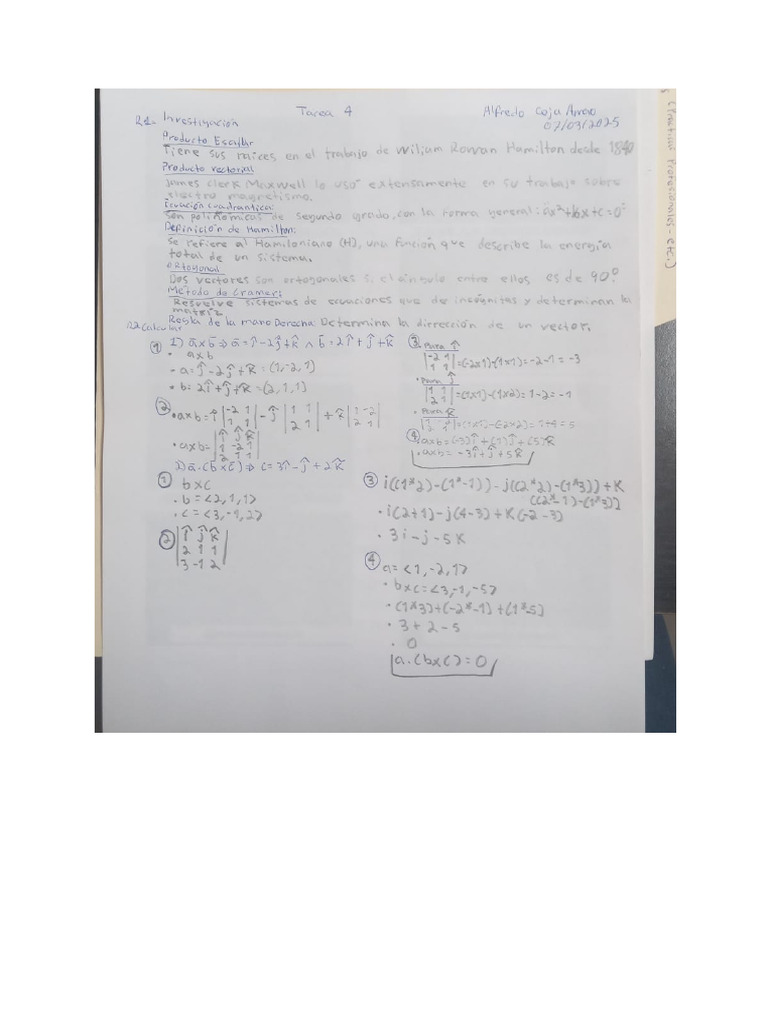 Tarea 4
Alfredo Coja Arroyo
07/03/2025
R1= Investigación
Producto Escalar
Tiene sus raices en el trabajo de Wiliam Rowan Hamilton desde 1840
Producto vectorial
James Clerk Maxwell lo usó extensamente en su trabajo sobre
electro magnetismo.
Ecuación cuadranticas:
Son polinómicas de segundo grado, con la forma general: ax²+bx+c=0
Definición de Hamilton:
Se refiere al Hamiloniano (H), una función que describe la energía
total de un sistema.
Ortogonal
Dos vectores son ortogonales si el ángulo entre ellos es de 90°
Método de Cramer:
Resuelve sistemas de ecuaciones que de incógnitas y determinan la
matriz
Regla de la mano Derecha: Determina la dirrección de un vector.
R2 Calcular
① 1) a̅xb̅ ⇒ a̅=î-2ĵ+k̂ ∧ b̅=2î+ĵ+k̂
• axb
- a=î-2ĵ+k̂=(1,-2,1)
• b=2î+ĵ+k̂=(2,1,1)
② • axb=î |-2 1| -ĵ |1 1| +k̂ |1 -2|
|1 1| |2 1| |2 1|
• axb= |î ĵ k̂|
|1 -2 1|
|2 1 1|
③ • Para î
|-2 1|
|1 1| =(-2x1)-(1x1)=-2-1=-3
• Para ĵ
|1 1|
|2 1| =(1x1)-(1x2)=1-2=-1
• Para k̂
=(1x1)-(-2x2)=1+4=5
④ axb=(-3)î+(1)ĵ+(5)k̂
• axb= -3î+ĵ+5k̂
2) a̅.(b̅xc̅) ⇒ c=3î-ĵ+2k̂
① bxc
• b=<2,1,1>
• c=<3,-1,2>
② |î ĵ k̂|
|2 1 1|
|3 -1 2|
③ i((1*2)-(1*-1))-j((2*2)-(1*3))+K
((2*-1)-(1*3))
• i(2+1)-j(4-3)+K(-2-3)
• 3i-j-5K
④ a=<1,-2,1>
• bxc=<3,-1,-5>
• (1*3)+(-2*-1)+(1*-5)
• 3+2-5
• 0
a.(bxc)=0